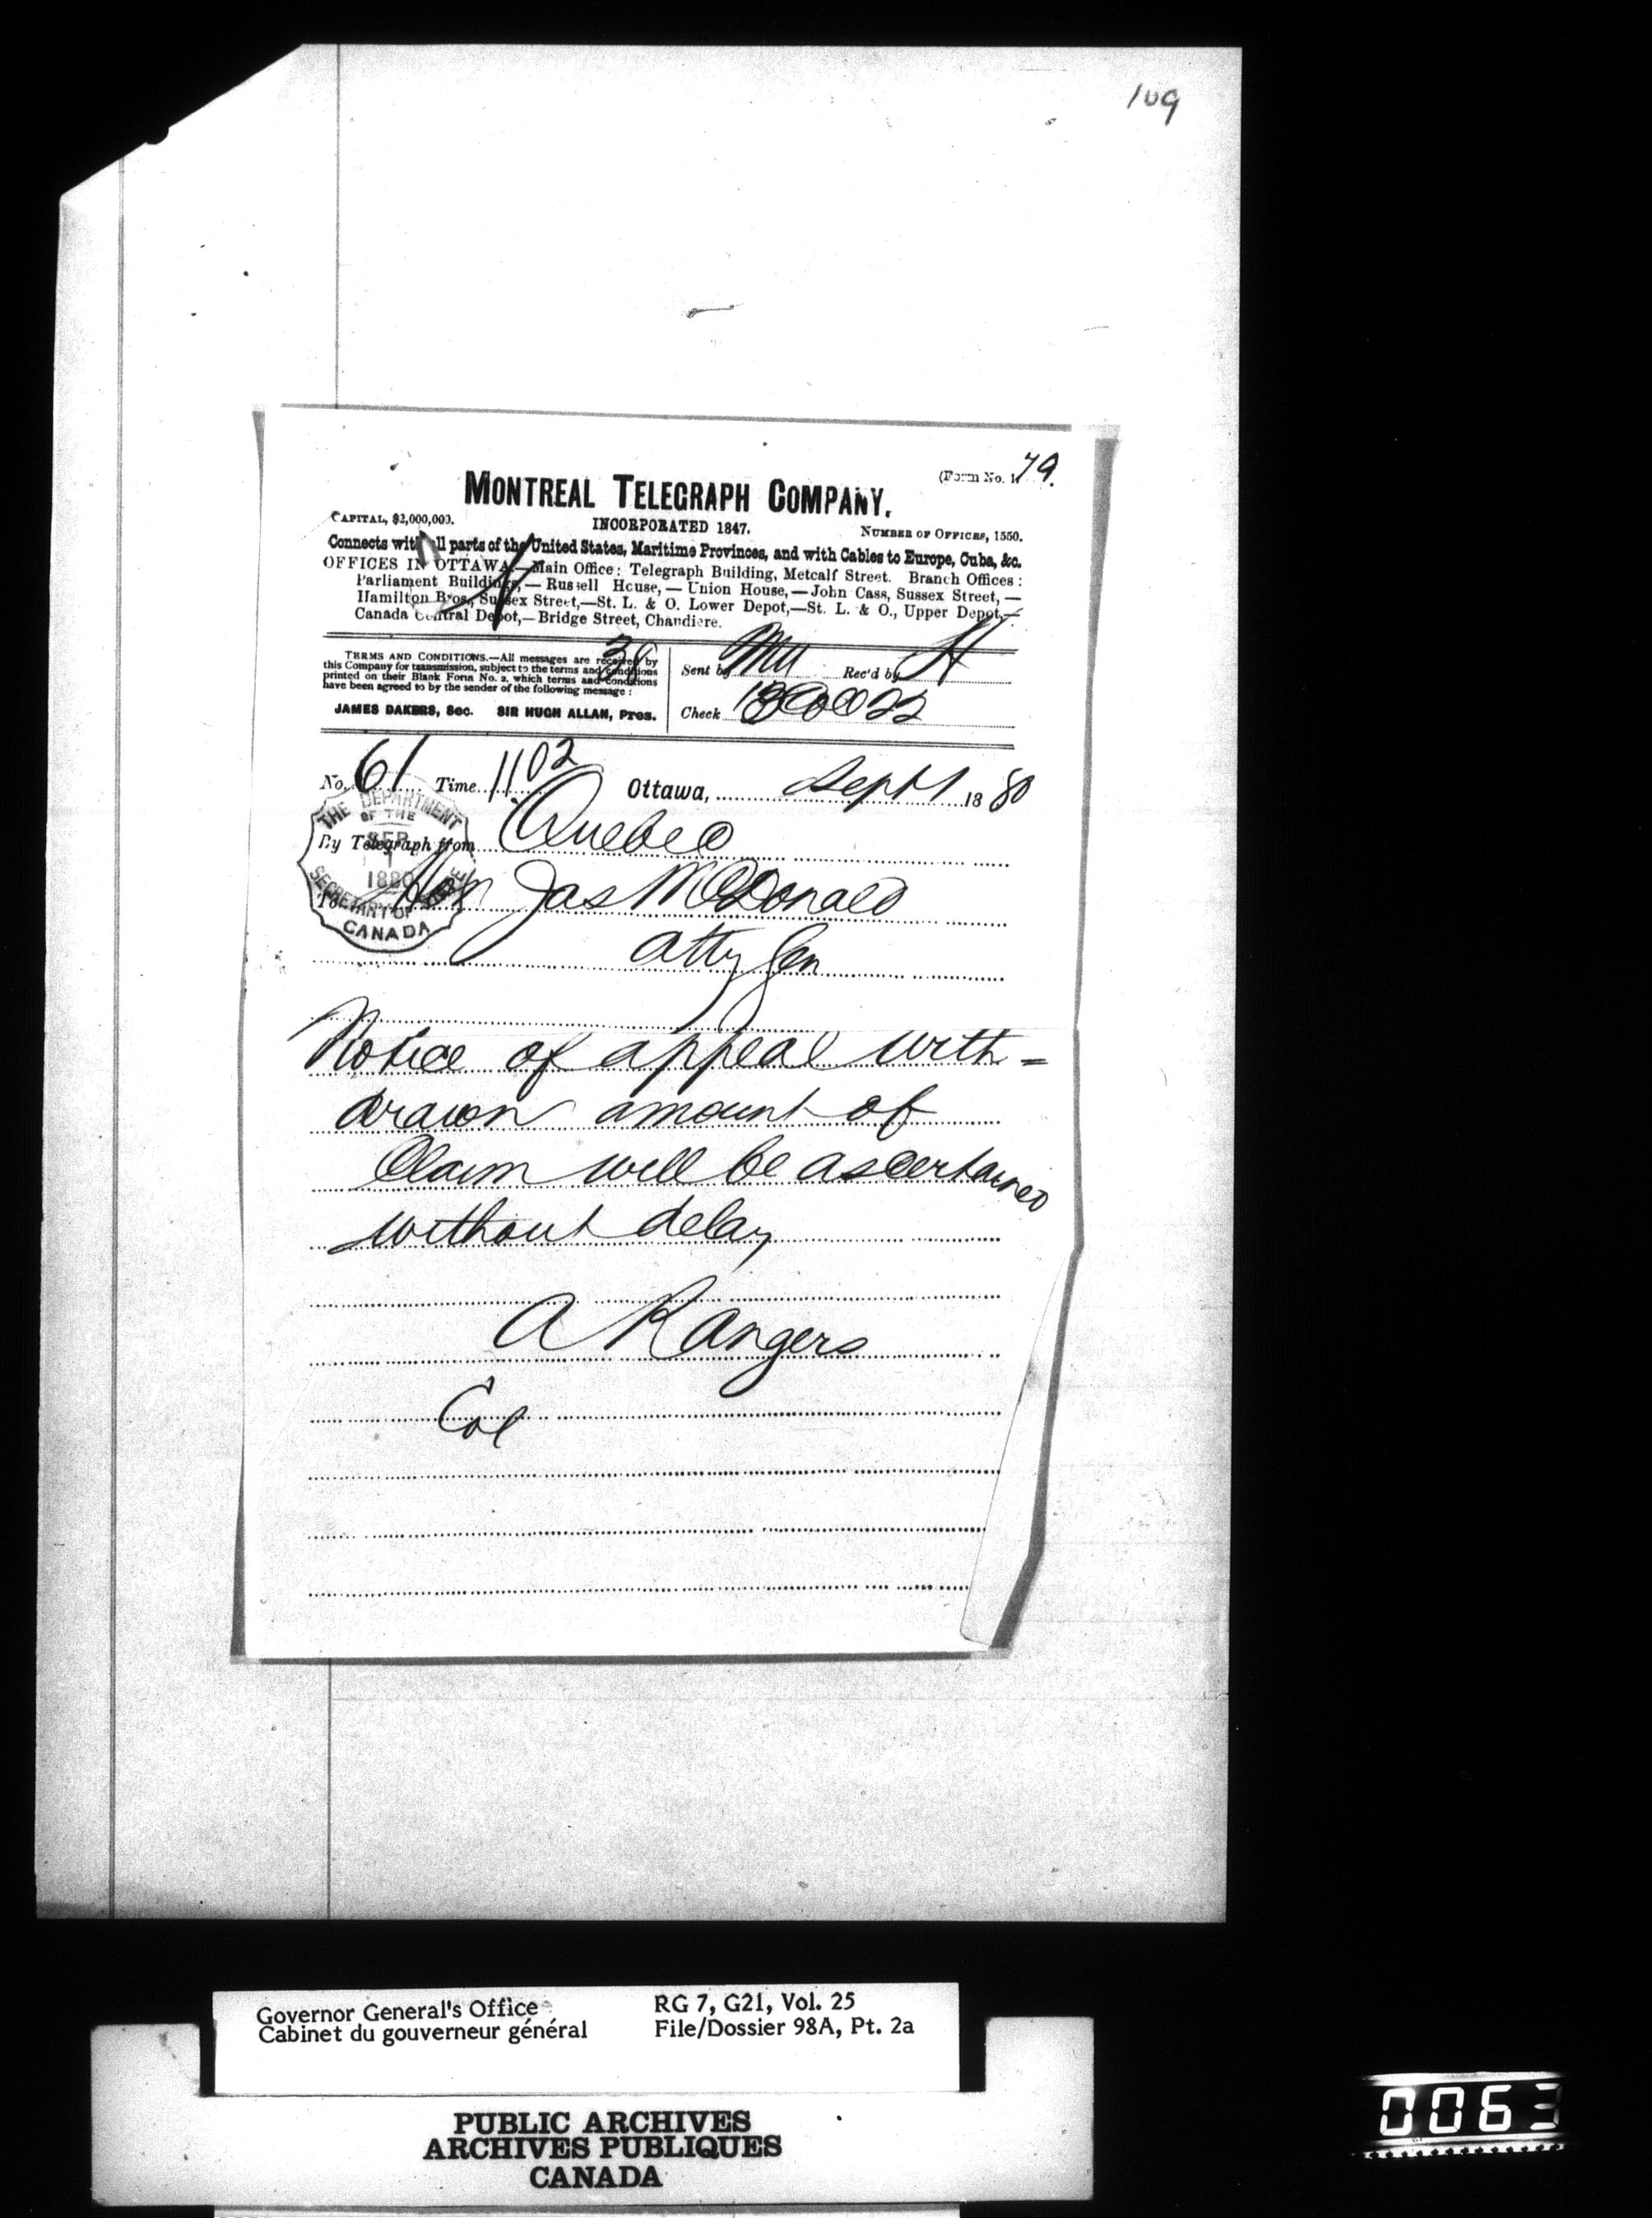 109
(Form No. 1, 79.
MONTREAL TELEGRAPH COMPANY.
CAPITAL, $2,000,000. INCORPORATED 1847. NUMBER OF OFFICES, 1550.
Connects with all parts of the United States, Maritime Provinces, and with Cables to Europe, Cuba, &c.
OFFICES IN OTTAWA.—Main Office: Telegraph Building, Metcalf Street. Branch Offices:
Parliament Buildings,—Russell House,—Union House,—John Cass, Sussex Street,—
Hamilton Bros., Sussex Street,—St. L. & O. Lower Depot,—St. L. & O., Upper Depot,—
Canada Central Depot,—Bridge Street, Chandiere.
TERMS AND CONDITIONS.—All messages are received by
this Company for transmission, subject to the terms and conditions
printed on their Blank Form No. 2, which terms and conditions
have been agreed to by the sender of the following message:
JAMES DAKERS, Sec. SIR HUGH ALLAN, Pres.
Sent by Rec'd by H
Check
No. 61 Time 11.02 Ottawa, Sept 1 1880
THE DEPARTMENT
OF THE
SEP
1
1880
SECRETARY OF STATE
CANADA
By Telegraph from Quebec
To Hon Jas McDonald
Atty Gen
Notice of appeal with=
drawn amount of
Claim will be ascertained
without delay
A R Angers
Col
Governor General's Office RG 7, G21, Vol. 25
Cabinet du gouverneur général File/Dossier 98A, Pt. 2a
PUBLIC ARCHIVES
ARCHIVES PUBLIQUES
CANADA
0063